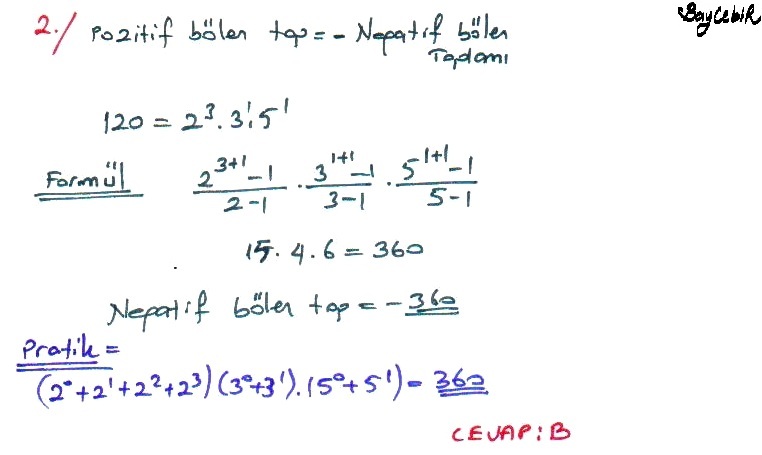 BayCebiR
2./ Pozitif bölen top = - Negatif bölen
Toplamı
120 = 2³. 3¹. 5¹
Formül (2³⁺¹-1)/(2-1) . (3¹⁺¹-1)/(3-1) . (5¹⁺¹-1)/(5-1)
15. 4. 6 = 360
Negatif bölen top = -360
Pratik =
(2⁰+2¹+2²+2³)(3⁰+3¹).(5⁰+5¹) = 360
CEVAP: B